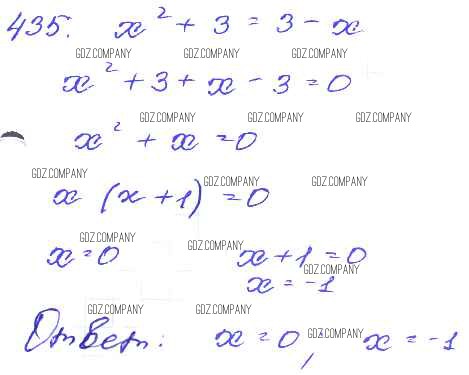 435. x² + 3 = 3 - x
GDZ.COMPANY GDZ.COMPANY GDZ.COMPANY
x² + 3 + x - 3 = 0
GDZ.COMPANY GDZ.COMPANY GDZ.COMPANY
x² + x = 0
GDZ.COMPANY GDZ.COMPANY GDZ.COMPANY
x (x + 1) = 0
GDZ.COMPANY GDZ.COMPANY
x = 0 x + 1 = 0
GDZ.COMPANY
x = -1
GDZ.COMPANY GDZ.COMPANY
Ответ: x = 0, x = -1
GDZ.COMPANY